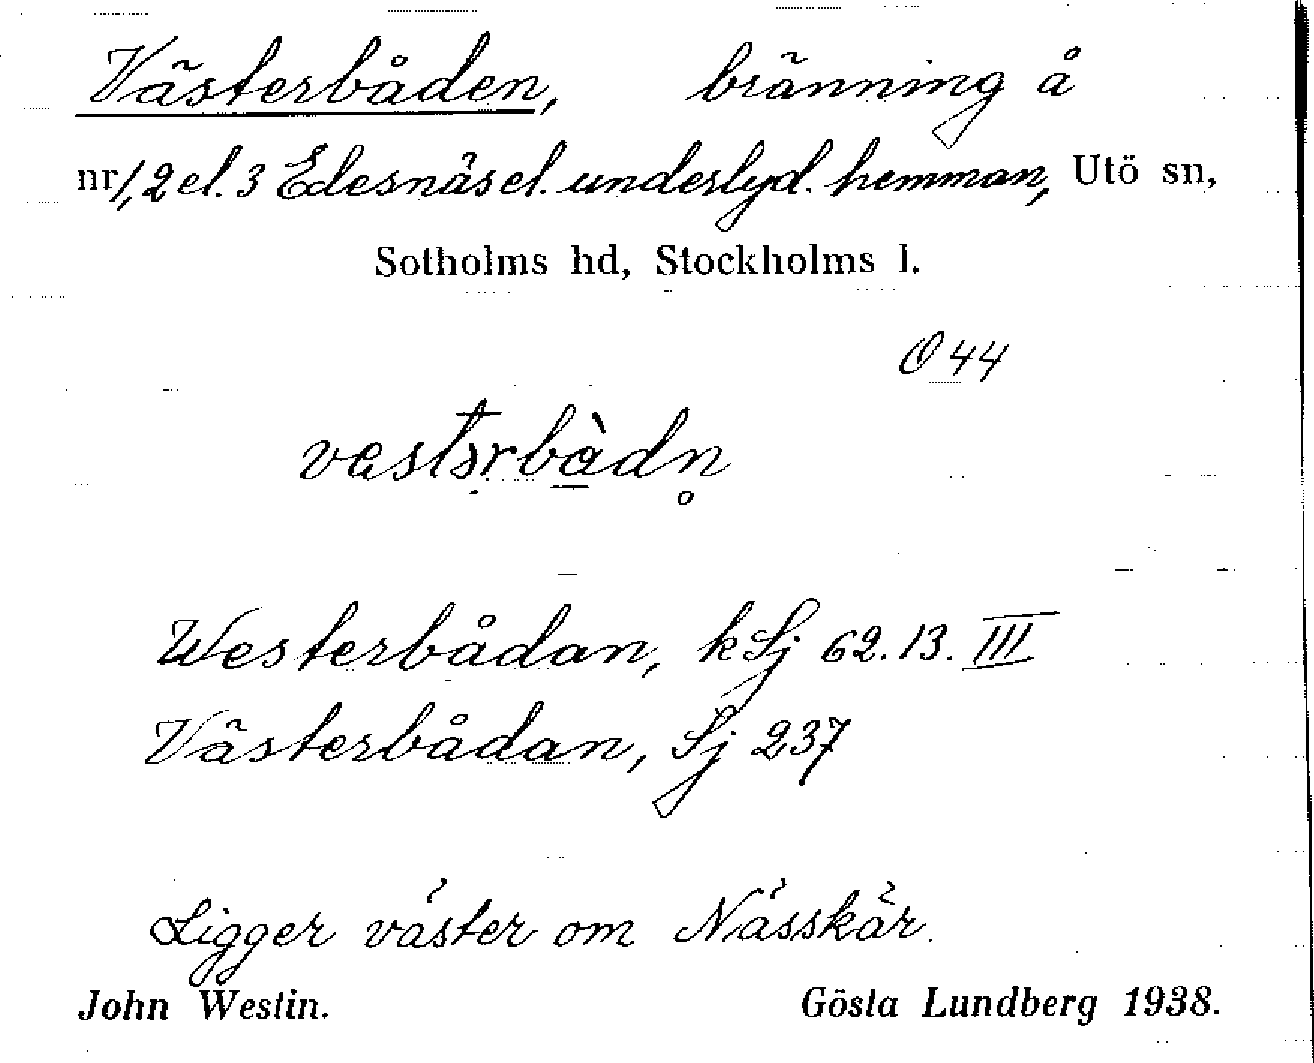 Västerbåden, bränning å
nr 1, 2 el. 3 Edesnäs el. underlyd. hemman, Utö sn,
Sotholms hd, Stockholms l.
O 44
Westerbådan, kSj 62.13. III
Västerbådan, Sj 237
Ligger väster om Nässkär.
John Westin. Gösta Lundberg 1938.